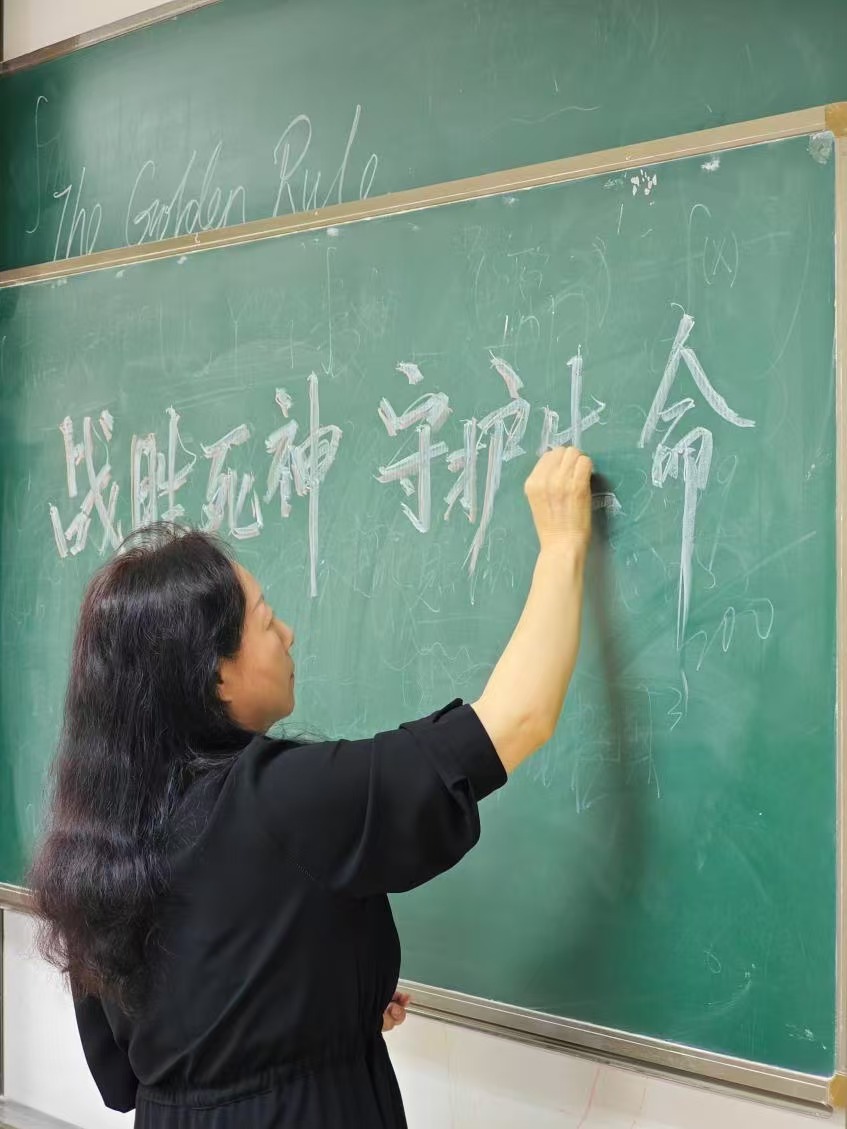 The Golden Rule
f(x)
战胜死神 守护生命